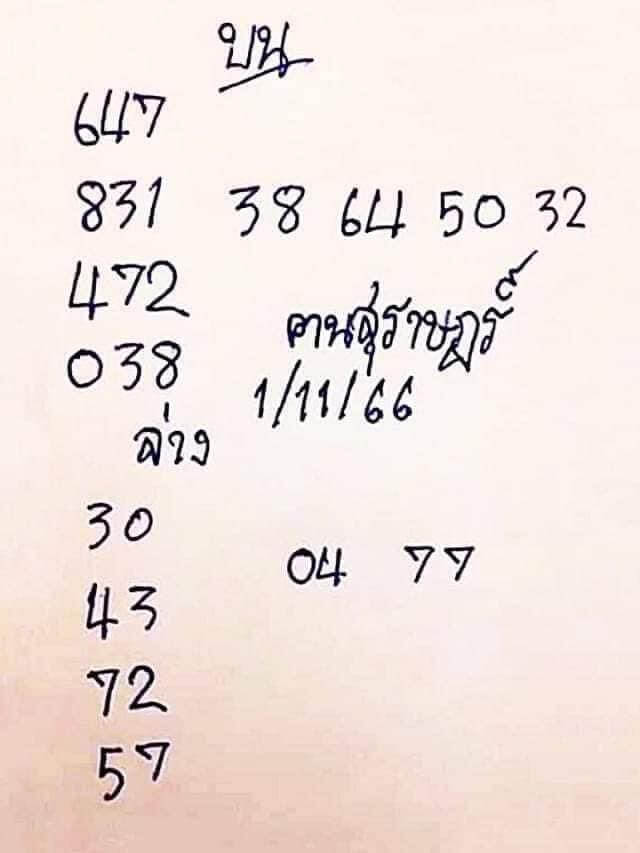 บน
647
831 38 64 50 32
472
คนสุราษฎร์
038
1/11/66
ล่าง
30
04 77
43
72
57